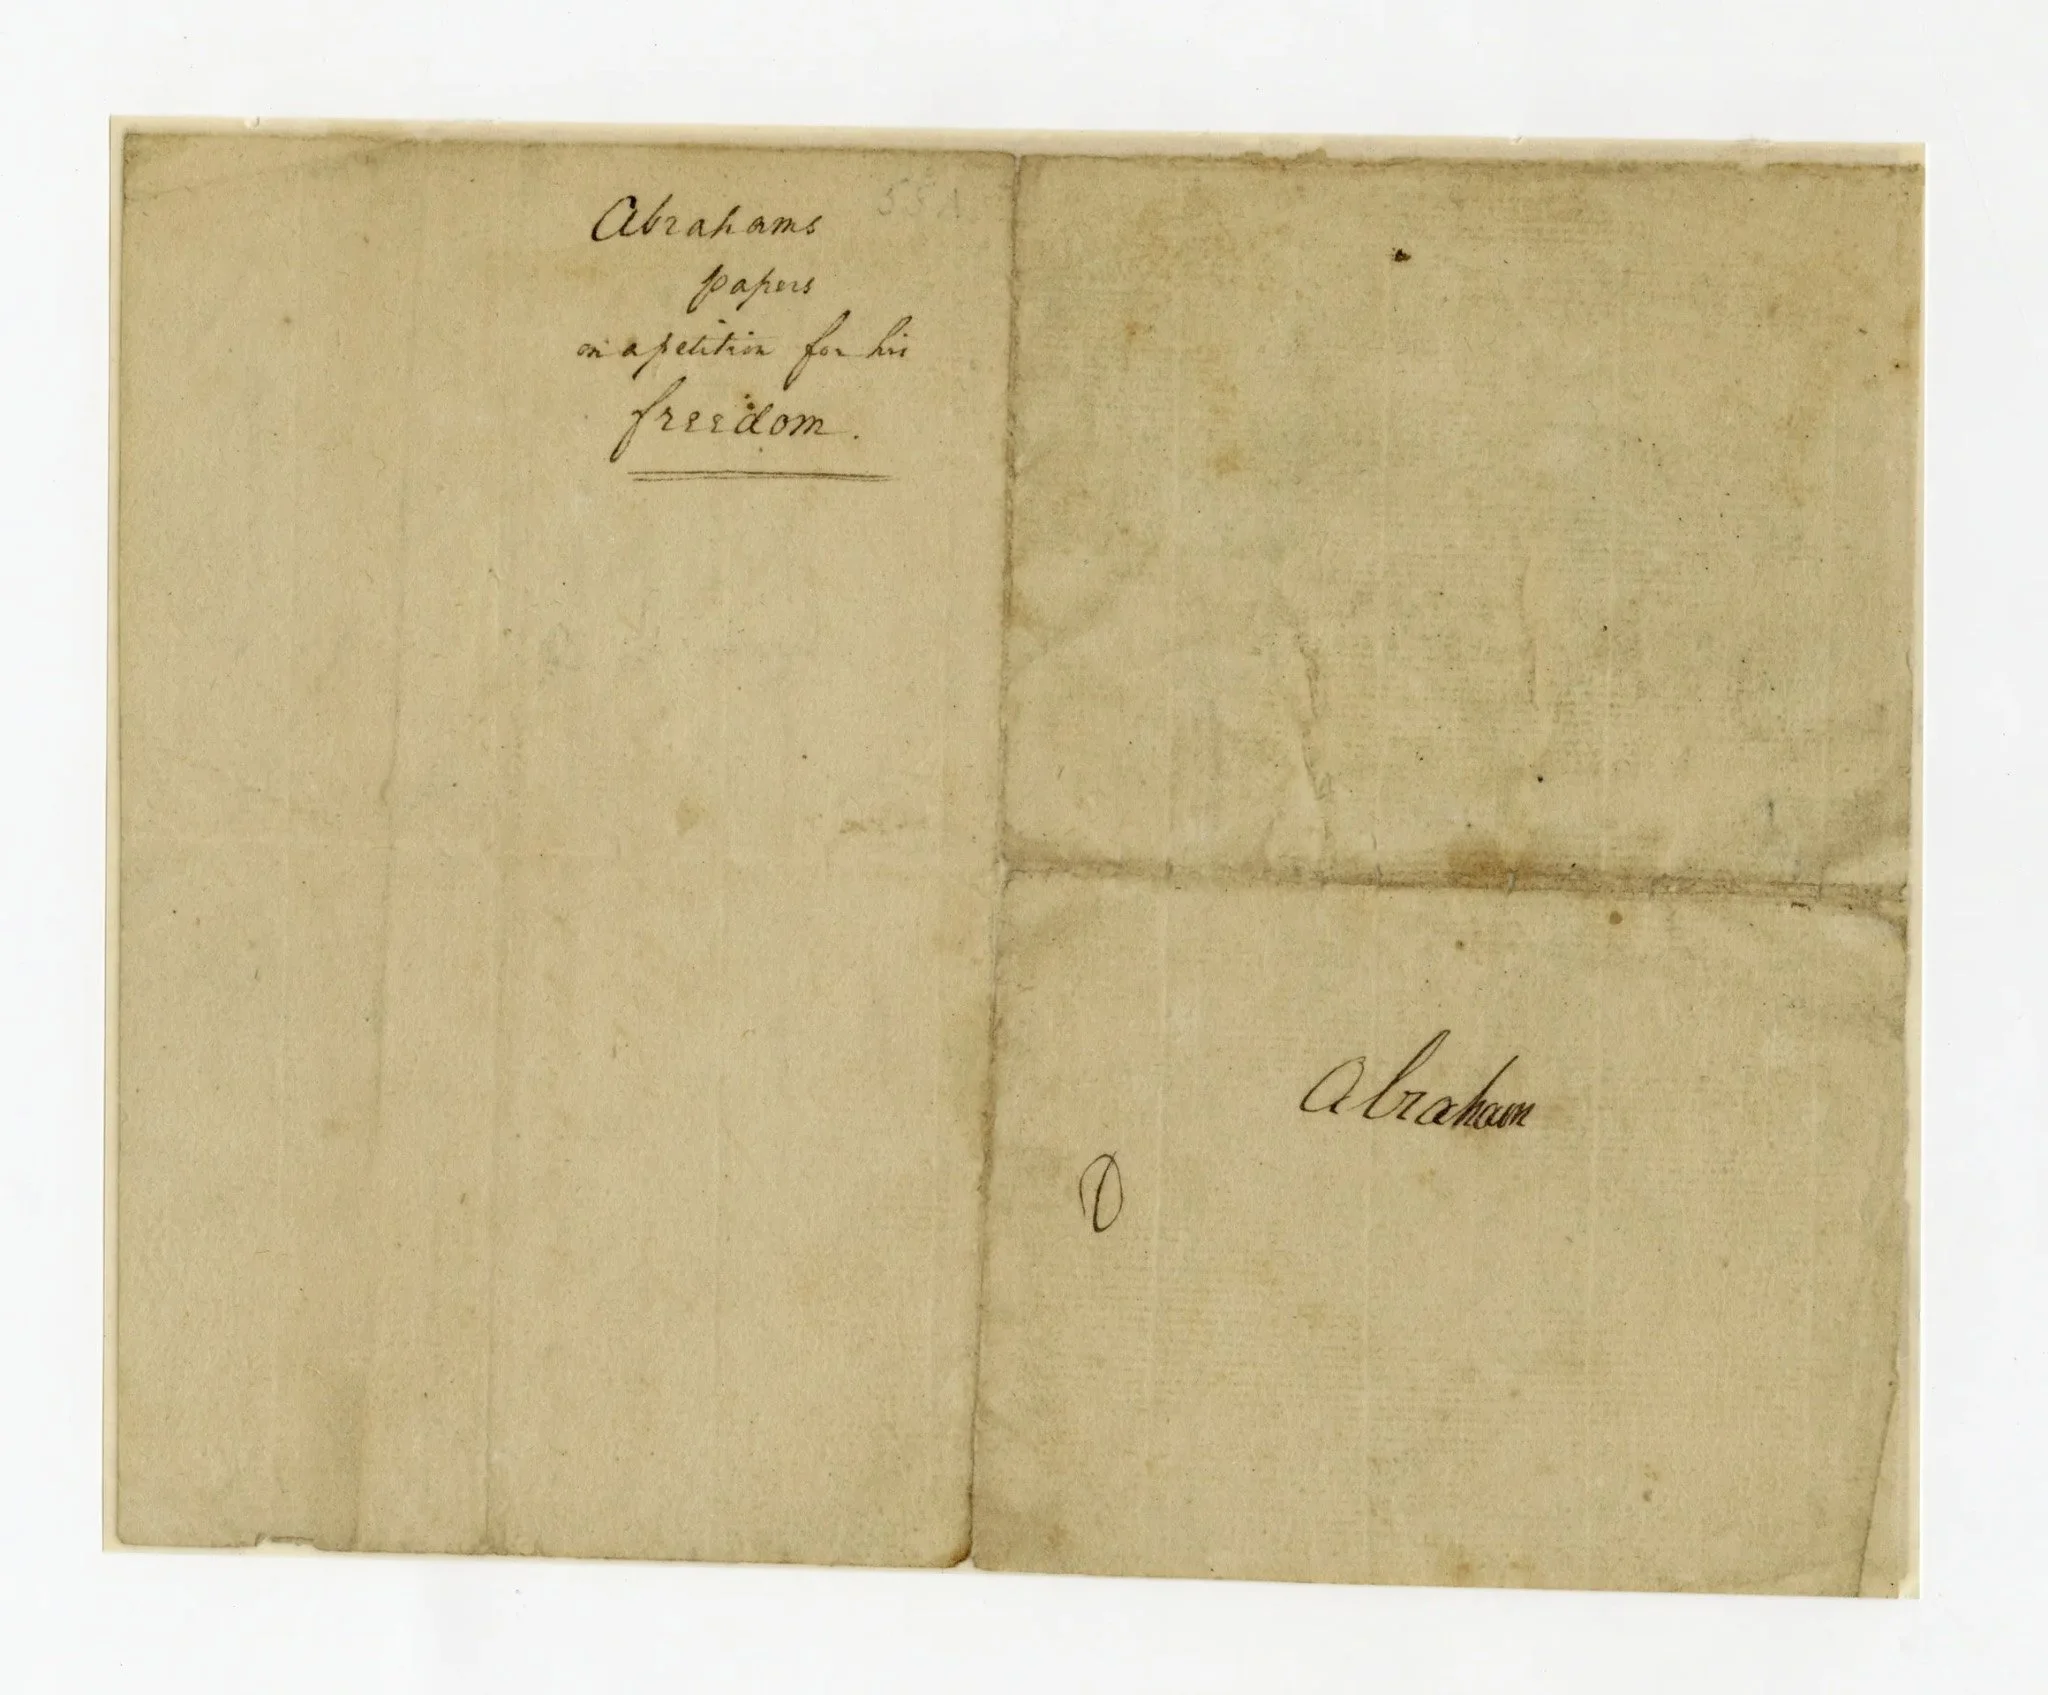 Abrahams
papers
on a petition for his
freedom.
Abraham